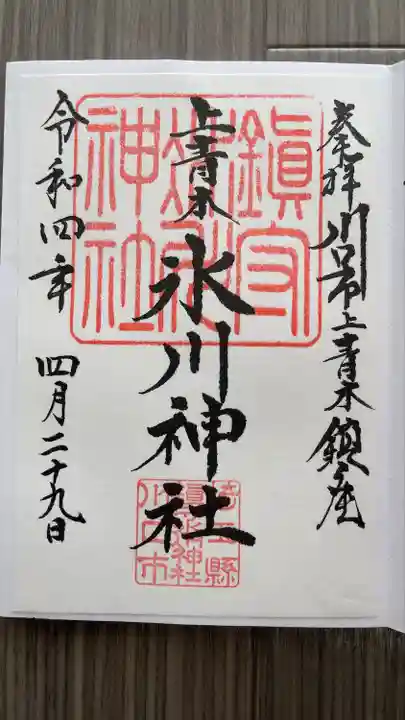 奉拝 川口市上青木鎮座
上青木
氷川神社
令和四年 四月二十九日
鎮守
氷川
神社
埼玉縣
川口市